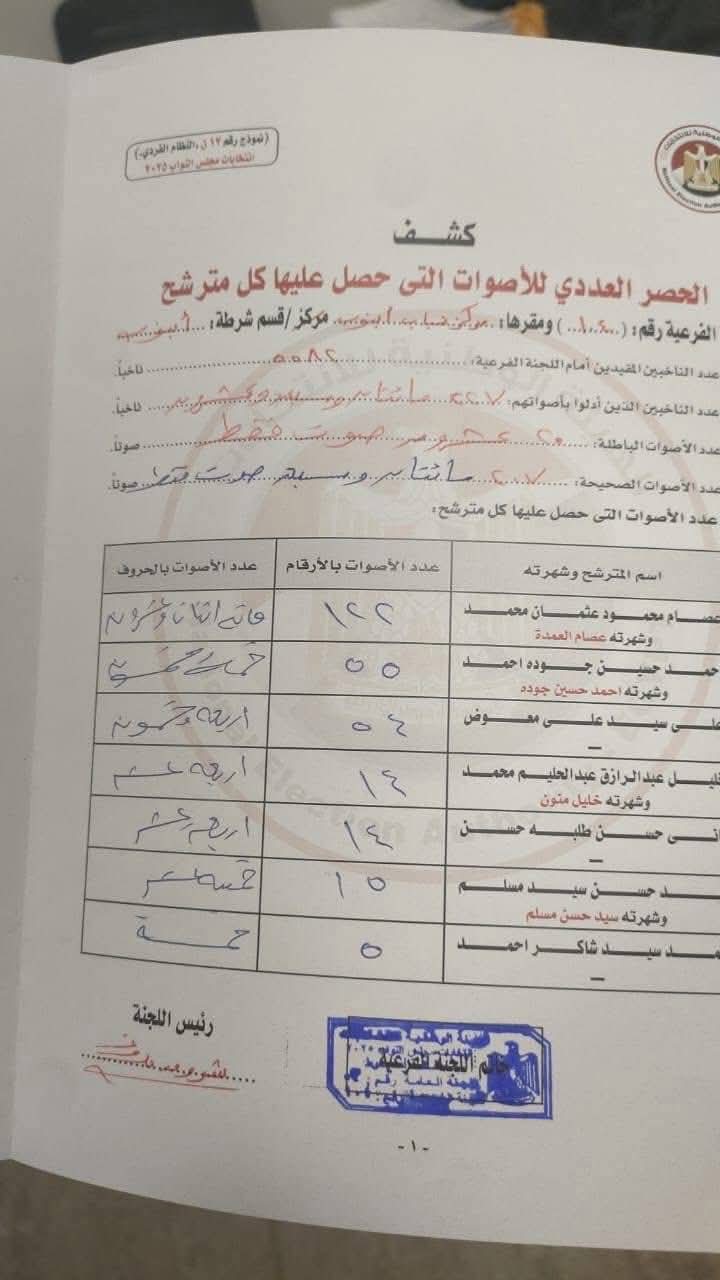 (نموذج رقم ١٢ ن «النظام الفردي»)
انتخابات مجلس النواب ٢٠٢٥
كشف
الحصر العددي للأصوات التى حصل عليها كل مترشح
الفرعية رقم: ( ) ومقرها: مركز شباب مركز /قسم شرطة:
عدد الناخبين المقيدين أمام اللجنة الفرعية: ٥٥٨٢ ناخباً.
عدد الناخبين الذين أدلوا بأصواتهم: ٢٢٧ مائتان وسبعة وعشرون ناخباً.
عدد الأصوات الباطلة: ٢٠ عشرون صوت فقط صوتاً.
عدد الأصوات الصحيحة: ٢٠٧ مائتان وسبعة صوت فقط صوتاً.
عدد الأصوات التى حصل عليها كل مترشح:
اسم المترشح وشهرته عدد الأصوات بالأرقام عدد الأصوات بالحروف
عصام محمود عثمان محمد ١٢٢ مائه اثنان وعشرون
وشهرته عصام العمدة
حمد حسين جوده احمد ٥٥ خمسة وخمسون
وشهرته احمد حسين جوده
على سيد على معوض ٥٤ اربعه وخمسون
–
ليل عبدالرازق عبدالحليم محمد ١٤ اربعه عشر
وشهرته خليل منون
انى حسن طلبه حسن ١٤ اربعه عشر
–
د حسن سيد مسلم ١٥ خمسه عشر
وشهرته سيد حسن مسلم
مد سيد شاكر احمد ٥ خمسة
–
رئيس اللجنة
خاتم اللجنة الفرعية
- ١ -